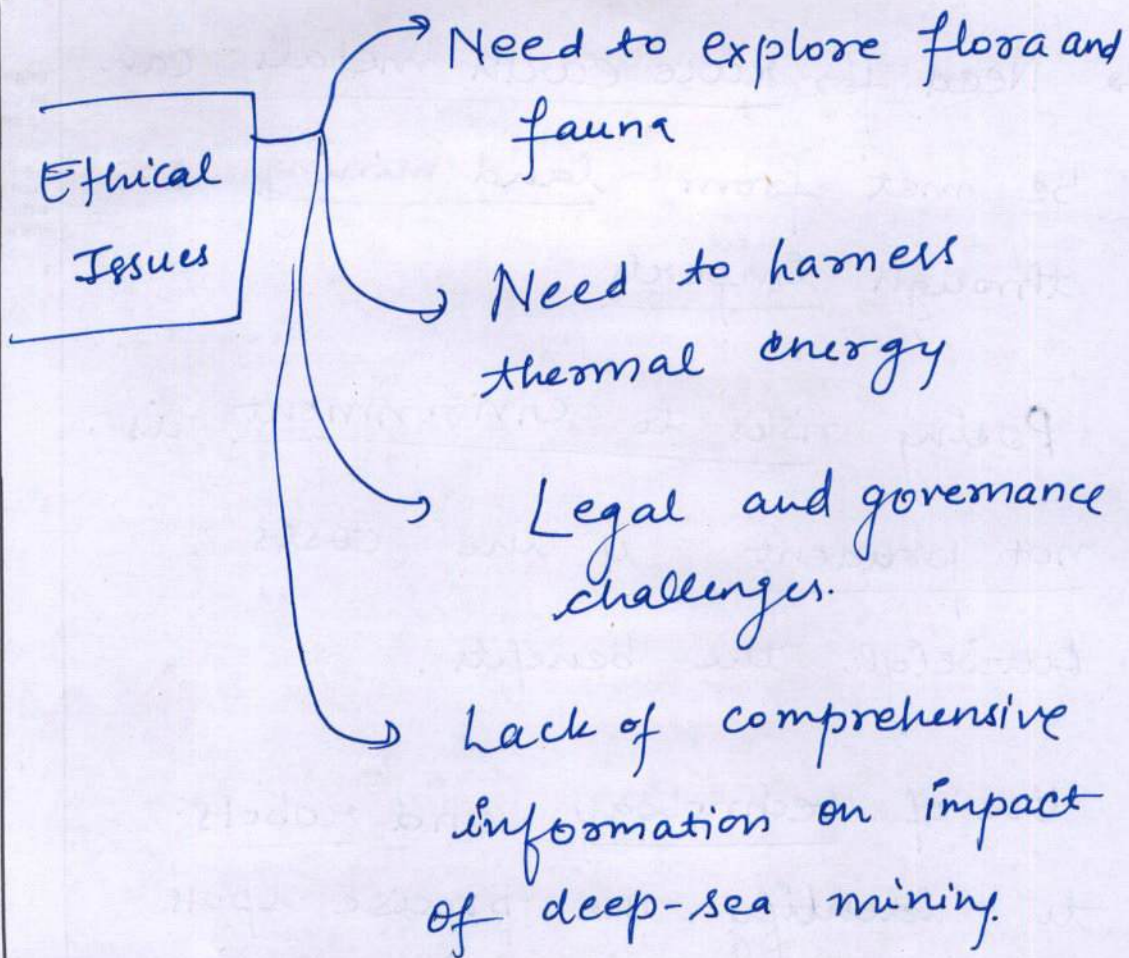 Ethical
Issues
Need to explore flora and
fauna
Need to harness
thermal energy
Legal and governance
challenges.
Lack of comprehensive
information on impact
of deep-sea mining.